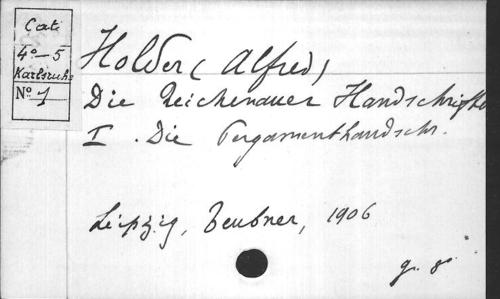 Cat.
4°–5
Karlsruhe
N° 1
Holder (Alfred)
Die Reichenauer Handschriften
I. Die Pergamenthandschr.
Leipzig, Teubner, 1906
g. 8.